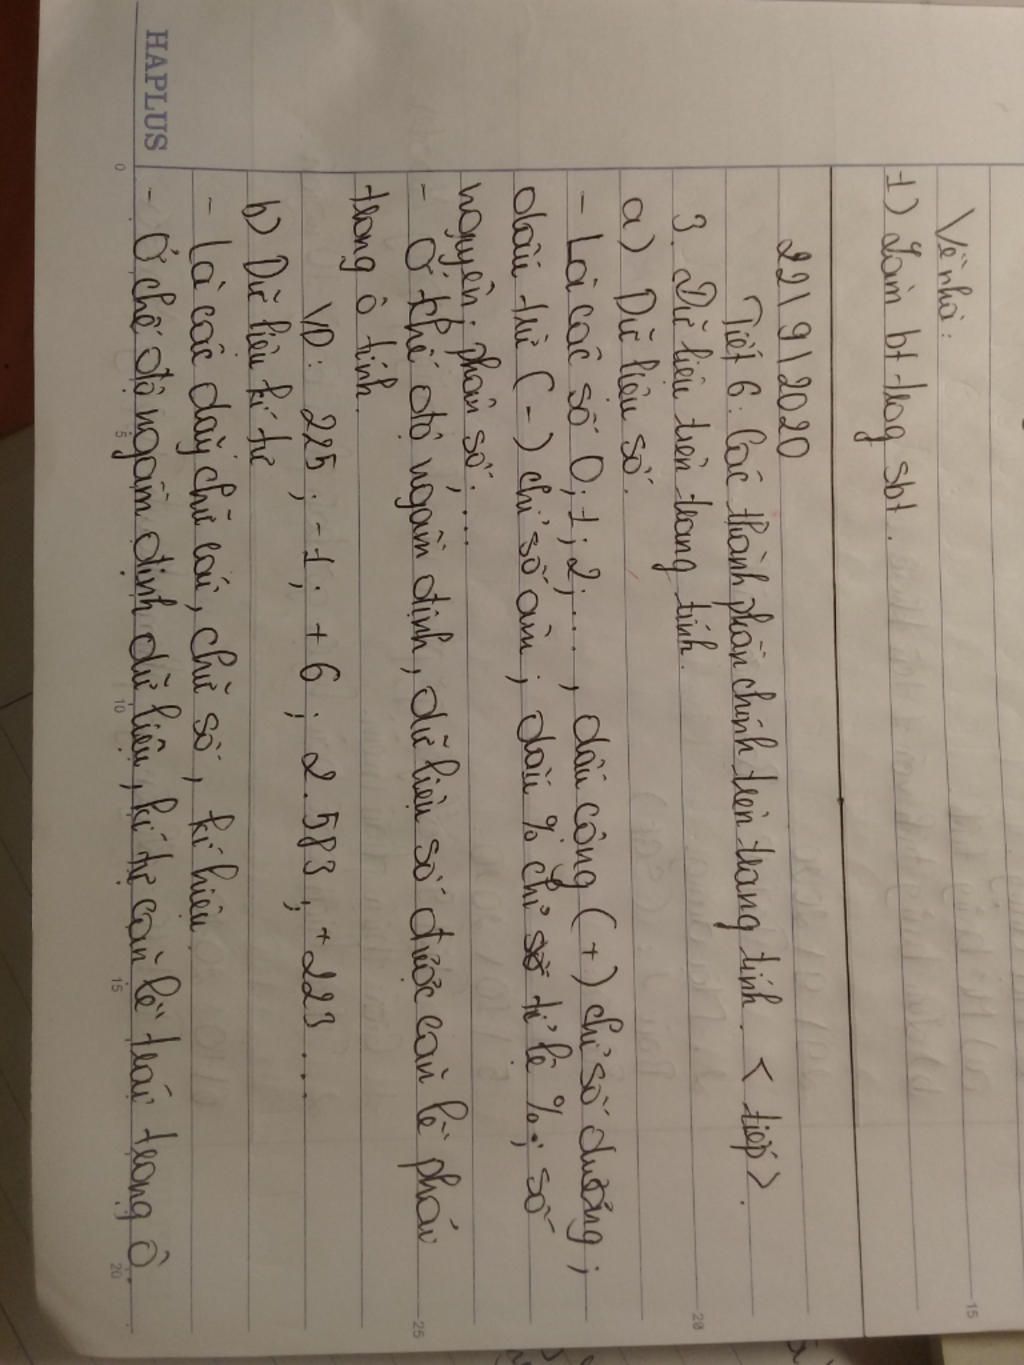 Về nhà:
1) Làm bt trog sbt.
22/9/2020
Tiết 6: Các thành phần chính trên trang tính. < tiếp>.
3. Dữ liệu trên trang tính.
a) Dữ liệu số.
- Là các số 0; 1; 2; ..., dấu cộng (+) chỉ số dương;
dấu trừ (-) chỉ số âm; dấu % chỉ số tỉ lệ %; số
nguyên; phân số; ...
- Ở chế độ ngầm định, dữ liệu số được căn lề phải
trong ô tính.
VD: 225; -1; +6; 2.583; +223...
b) Dữ liệu kí tự
- Là các dãy chữ cái, chữ số, kí hiệu
- Ở chế độ ngầm định dữ liệu, kí tự căn lề trái trong ô
HAPLUS
0 5 10 15 20
15
20
25